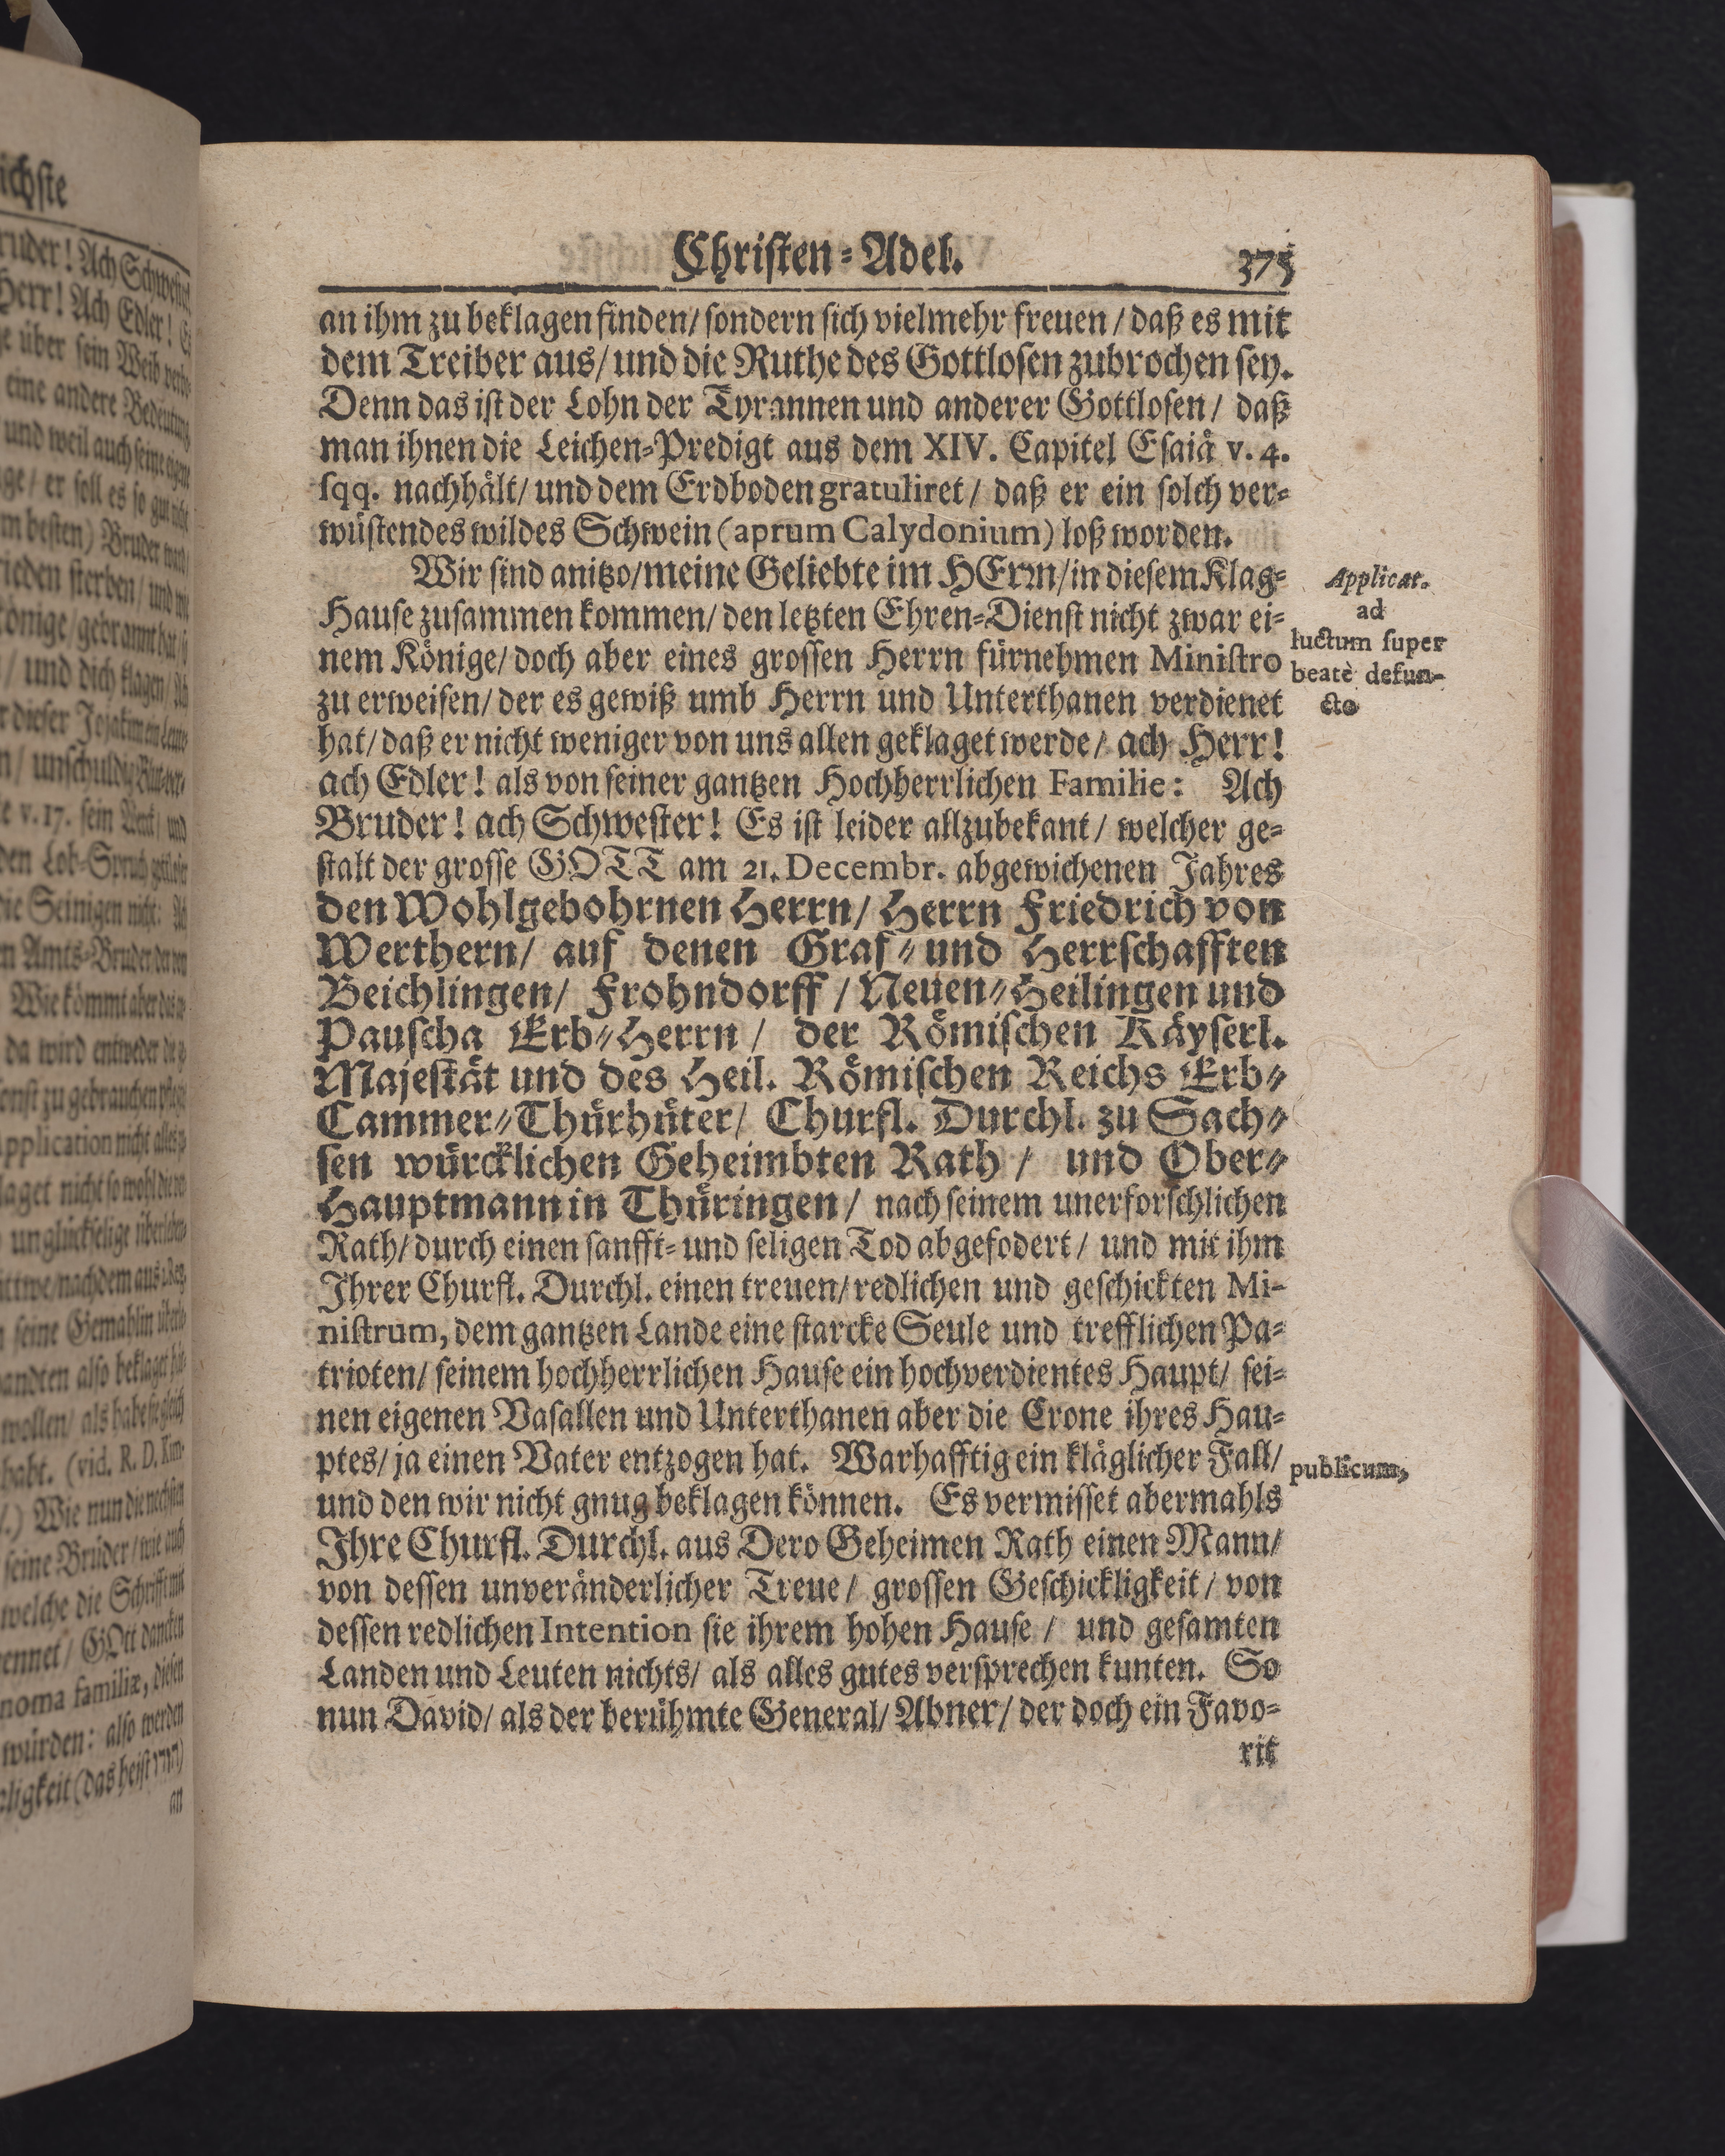 Christen-Adel. 375
an ihm zu beklagen finden/ sondern sich vielmehr freuen/ daß es mit
dem Treiber aus/ und die Ruthe des Gottlosen zubrochen sey.
Denn das ist der Lohn der Tyrannen und anderer Gottlosen/ daß
man ihnen die Leichen-Predigt aus dem XIV. Capitel Esaiä v. 4.
sqq. nachhält/ und dem Erdboden gratuliret/ daß er ein solch ver-
wüstendes wildes Schwein (aprum Calydonium) loß worden.
Wir sind anitzo/ meine Geliebte im HErrn/ in diesem Klag-
Hause zusammen kommen/ den letzten Ehren-Dienst nicht zwar ei-
nem Könige/ doch aber eines grossen Herrn fürnehmen Ministro
zu erweisen/ der es gewiß umb Herrn und Unterthanen verdienet
hat/ daß er nicht weniger von uns allen geklaget werde/ ach Herr!
ach Edler! als von seiner gantzen Hochherrlichen Familie: Ach
Bruder! ach Schwester! Es ist leider allzubekant/ welcher ge-
stalt der grosse GOTT am 21. Decembr. abgewichenen Jahres
den Wohlgebohrnen Herrn/ Herrn Friedrich von
Werthern/ auf denen Graf- und Herrschafften
Beichlingen/ Frohndorff/ Neuen-Heilingen und
Pauscha Erb-Herrn/ der Römischen Käyserl.
Majestät und des Heil. Römischen Reichs Erb-
Cammer-Thürhüter/ Churfl. Durchl. zu Sach-
sen würcklichen Geheimbten Rath/ und Ober-
Hauptmann in Thüringen/ nach seinem unerforschlichen
Rath/ durch einen sanfft- und seligen Tod abgefodert/ und mit ihm
Ihrer Churfl. Durchl. einen treuen/ redlichen und geschickten Mi-
nistrum, dem gantzen Lande eine starcke Seule und trefflichen Pa-
trioten/ seinem hochherrlichen Hause ein hochverdientes Haupt/ sei-
nen eigenen Vasallen und Unterthanen aber die Crone ihres Hau-
ptes/ ja einen Vater entzogen hat. Warhafftig ein kläglicher Fall/
und den wir nicht gnug beklagen können. Es vermisset abermahls
Ihre Churfl. Durchl. aus Dero Geheimen Rath einen Mann/
von dessen unveränderlicher Treue/ grossen Geschickligkeit/ von
dessen redlichen Intention sie ihrem hohen Hause/ und gesamten
Landen und Leuten nichts/ als alles gutes versprechen kunten. So
nun David/ als der berühmte General/ Abner/ der doch ein Favo-
rit
Applicat.
ad
luctum super
beatè defun-
cto
publicum,